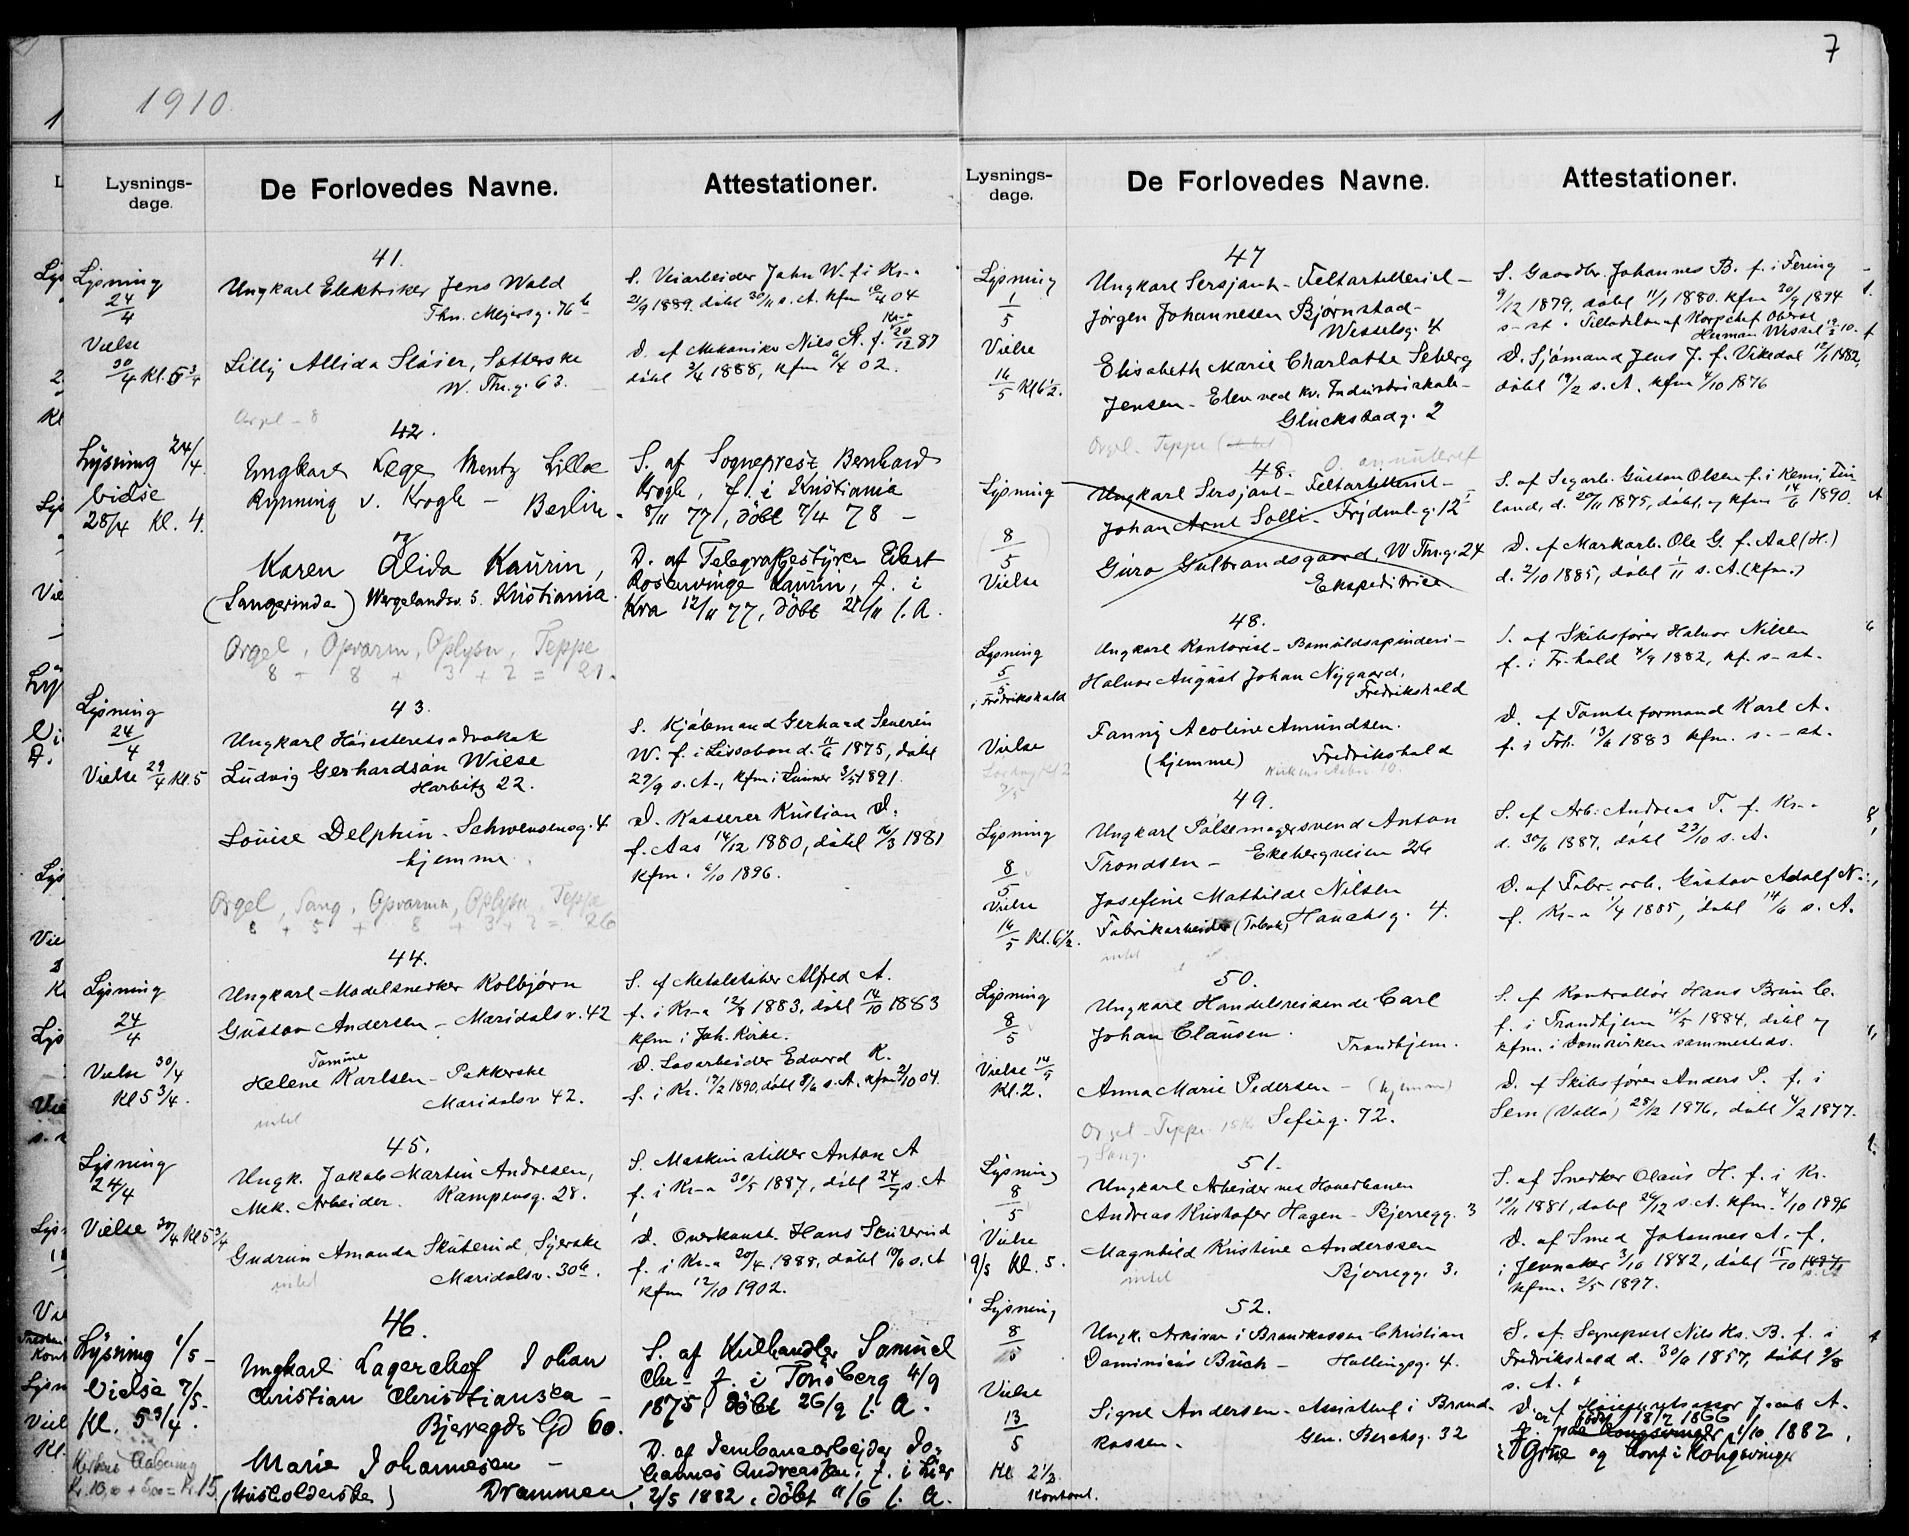 7
1910.
Lysnings-
dage.
De Forlovedes Navne.
Attestationer.
41.
Lysning
24/4
Vielse
30/4 Kl. 5 3/4
Ungkarl Elektriker Jens Wold
Thv. Meyersg. 76 b
Lilly Allida Sløier, Sætterske
W. Thr. g. 63.
Orgel - 8
S. Veiarbeider John W. f. i Kr-a
21/9 1889. døbt 30/11 s. A. kfm 04
D. af Mekaniker Nils S. f. Kr-a 20/12 87
døbt 3/4 1888, kfm 6/4 02.
42.
Lysning 24/4.
Vielse
28/4 Kl. 4.
Ungkarl Læge Mentz Lilloe
Rynning v. Krogh - Berlin.
Karen Alida Kaurin,
(Sangerinde) Wergelandsv. 5. Kristiania
Orgel, Opvarm, Oplysn, Teppe
8 + 8 + 3 + 2 = 21.
S. af Sogneprest Bernhard
Krogh, f. i Kristiania
8/11 77, døbt 7/4 78 -
D. af Telegrafbestyrer Eibert
Rosenvinge Kaurin, f. i
Kra 12/11 77, døbt 25/11 s. A.
43.
Lysning
24/4
Vielse 29/4 Kl. 5
Ungkarl Høiesteretsadvokat
Ludvig Gerhardson Wiese
Harbitz 22.
Louise Delphin - Schwensensg. 4
hjemme
Orgel, Sang, Opvarmn, Oplysn, Teppe
8 + 5 + 8 + 3 + 2 = 26
S. Kjøbmand Gerhard Severin
W. f. i Lissabon d. 11/6 1875, døbt
29/9 s. A., kfm i Lunner 3/5 1891.
D. Kasserer Kristian D.
f. Aas 14/12 1880, døbt 16/3 1881
kfm. 6/10 1896.
44.
Lysning
24/4
Vielse 30/4
Kl 5 3/4.
Ungkarl Modelsnedker Kolbjørn
Gustav Andersen - Maridalsv. 42
Tomine
Helene Karlsen - Pakkerske
Maridalsv 42.
intet
S. af Metalstøber Alfred A.
f. i Kr-a 12/8 1883, døbt 14/10 1883
kfm i Joh. Kirke.
D. Løsarbeider Edvard K.
f. i Kr. 17/2 1890, døbt 8/6 s. A. kfm 2/10 04.
45.
Lysning
24/4
Vielse 30/4 Kl 5 3/4
Ungk. Jakob Martin Andresen,
Mek. Arbeider. Kampensg. 28.
Gudrun Amanda Skuterud, Syerske
Maridalsv. 30 b.
intet
S. Maskinstiller Anton A
f. i Kr-a 30/5 1887, døbt 24/7 s. A
D. Overkonst. Hans Skuterud
f. i Kr-a 20/4. 1888, døbt 10/6 s. A
kfm 12/10 1902.
46.
Lysning 1/5 -
Vielse 7/5 -
Kl. 5 3/4.
Kirkens Aabning
Kr. 10,00 + 5,00 = Kr. 15
Ungkarl Lagerchef Johan
Christian Christiansen -
Bjerregds Gd 60.
Marie Johannesen -
(Husholderske) Drammen
S. af Kulhandler Samuel
Chr- f. i Tønsberg 4/9
1875, døbt 26/9 s. A.
D. af Jernbanearbejder Jo-
hannes Andreassen, f. i Lier
2/5 1882, døbt 11/6 s. A.
Lysnings-
dage.
De Forlovedes Navne.
Attestationer.
47
Lysning
1/5
Vielse
16/5 Kl 6 1/2.
Ungkarl Sersjant - Feltartilleriet -
Jørgen Johannesen Bjørnstad -
Wesselsg. 4
Elisabeth Marie Charlotte Seberg
Jensen - Elev ved kv. Industriskole -
Glückstadg. 2
Orgel - Teppe
S. Gaardbr. Johannes B. f. i Fering
9/12 1879, døbt 11/1 1880. kfm 30/9 1894
s-st. Tilladelse af Korpschef Oberst
Herman Wessel
D. Sjømand Jens J. f. Vikedal 12/1 1882,
døbt 19/2 s. A. kfm 4/10 1876
48.
annulleret
Lysning
8/5
Vielse
Ungkarl Sersjant - Feltartilleriet -
Johan Arnt Solli - Frydenl. g. 12
Guro Gulbrandsgaard, W Thr. g. 24
Ekspeditrice
S. af Sagarb. Gustav Olsen f. i Kemi, Fin
land, d. 20/11 1875, døbt, og kfm 14/6 1890
D. af Markarb. Ole G. f. Aal (H.)
d. 2/10 1885, døbt 1/11 s. A. (kfm.)
48.
Lysning
5/5
i Fredrikshald
Vielse
Lørdag Kl 2
7/5
Ungkarl Kontorist - Bomuldsspinderi -
Halvor August Johan Nygaard,
Fredrikshald
Fanny Acoline Amundsen.
(hjemme) Fredrikshald
Kirkens Aabn 10.
S. af Skibsfører Halvor Nilsen
f. i Fr. hald 4/9 1882, kf. s-st.
D. af Tomteformand Karl A.
f. i Frh. 13/6 1883 kfm. s. - st.
49.
Lysning
8/5
Vielse
16/5 Kl. 6 1/2.
Ungkarl Pølsemagersvend Anton
Trondsen - Ekebergveien 26
Josefine Mathilde Nilsen
Fabrikarbeider (Tobak) Hauchsg. 4.
intet
S. af Arb. Andreas T. f. Kr-a
d. 30/6 1887, døbt 23/10 s. A.
D. af Fabr. arb. Gustav Adolf N.
f. Kr-a 1/4 1885, døbt 14/6 s. A.
50.
Lysning
8/5
Vielse 14/9
Kl. 2.
Ungkarl Handelsreisende Carl
Johan Clausen.
Trondhjem.
Anna Marie Pedersen - (hjemme)
Seficg. 72.
Orgel - Teppe
og Sang.
S. af Kontrollør Hans Brun C.
f. i Trondhjem 14/5 1884, døbt og
kfm. i Domkirken sammesteds.
D. af Skibsfører Anders P. f. i
Sem (Vallø) 28/12 1876, døbt 4/2 1877.
51.
Lysning
8/5
Vielse
9/5 Kl. 5.
Ungkarl Arbeider ved Hovedbanen
Andreas Kristofer Hagen - Bjerregg. 3
Magnhild Kristine Anderssen
Bjerregg. 3.
intet
S. af Snedker Olaus H. f. i Kr.
10/11 1881, døbt 26/12 s. A. kfm. 4/10 1896
D. af Smed Johannes A. f.
i Jevnaker 3/10 1882, døbt 15/10
kfm. 2/5 1897.
52.
Lysning
8/5
Vielse
13/5
Kl 2 1/2.
Kontoret.
Ungk. Arkivar i Brandkassen Christian
Dominicus Buch - Hallingsg. 4.
Signe Andersen - Assistent i Brand-
kassen. Gen. Berchsg. 32
S. af Sogneprest Nils Hs. B. f. i
Fredrikshald d. 30/6 1857, døbt 9/8
s. A.
D. af Høiesteretsassor Jacob A.
født 18/2 1866
1/10 1882.
i Grue og konf i Kongsvinger